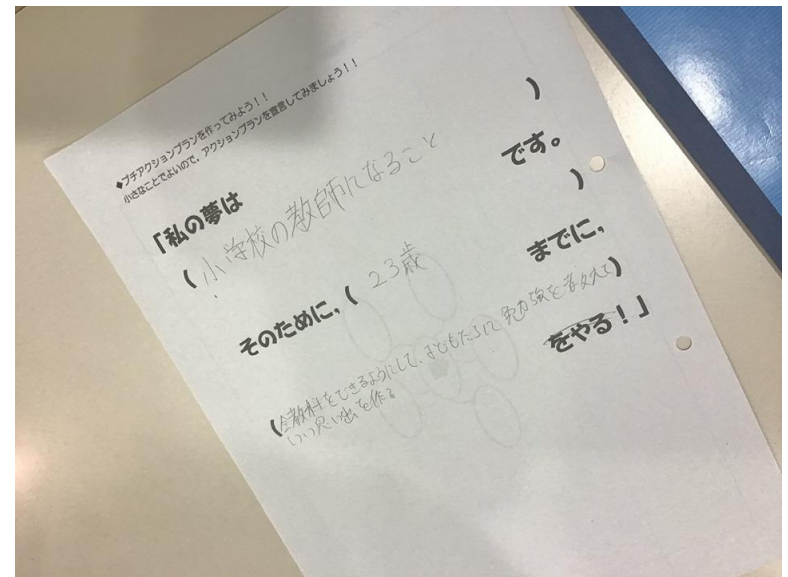 ◆プチアクションプランを作ってみよう！！
小さなことでよいので、アクションプランを宣言してみましょう！！
「私の夢は
(小学校の教師になること)です。
そのために，(23歳)までに，
(全教科をできるようにして、子どもたちに勉強を教えて)
いい思い出を作る
をやる！」